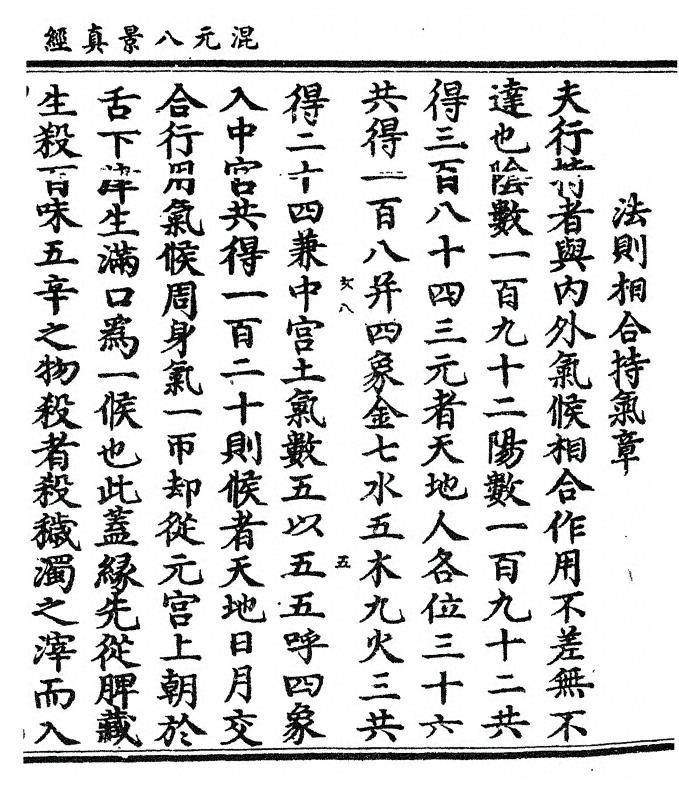 混元八景真經
法則相合持氣章
夫行持者與內外氣候相合作用不差無不
達也陰數一百九十二陽數一百九十二共
得三百八十四三元者天地人各位三十六
共得一百八并四象金七水五木九火三共
攵八
五
得二十四兼中宮土氣數五以五五呼四象
入中宮共得一百二十則候者天地日月交
合行用氣候周身氣一帀却從元宮上朝於
舌下津生滿口為一候也此蓋緣先從脾藏
生殺百味五辛之物殺者殺穢濁之滓而入